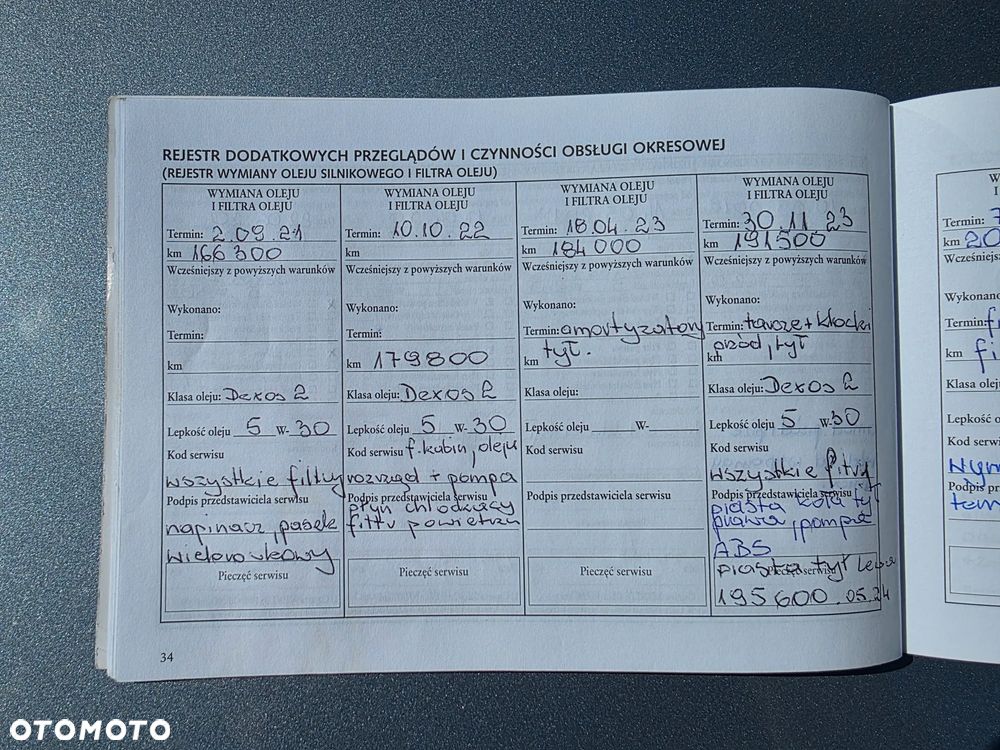 REJESTR DODATKOWYCH PRZEGLĄDÓW I CZYNNOŚCI OBSŁUGI OKRESOWEJ
(REJESTR WYMIANY OLEJU SILNIKOWEGO I FILTRA OLEJU)
WYMIANA OLEJU
I FILTRA OLEJU
Termin: 2.09.21
km 166 300
Wcześniejszy z powyższych warunków
Wykonano:
Termin:
km
Klasa oleju: Dexos 2
Lepkość oleju 5 W- 30
Kod serwisu
wszystkie filtry
Podpis przedstawiciela serwisu
napinacz, pasek
wielorowkowy
Pieczęć serwisu
WYMIANA OLEJU
I FILTRA OLEJU
Termin: 10.10.22
km
Wcześniejszy z powyższych warunków
Wykonano:
Termin:
km 179800
Klasa oleju: Dexos 2
Lepkość oleju 5 W- 30
Kod serwisu f. kabin, oleju
rozrząd + pompa
Podpis przedstawiciela serwisu
płyn chłodzący
filtr powietrza
Pieczęć serwisu
WYMIANA OLEJU
I FILTRA OLEJU
Termin: 18.04.23
km 184000
Wcześniejszy z powyższych warunków
Wykonano:
Termin: amortyzatory
km tył.
Klasa oleju:
Lepkość oleju W-
Kod serwisu
Podpis przedstawiciela serwisu
Pieczęć serwisu
WYMIANA OLEJU
I FILTRA OLEJU
Termin: 30.11.23
km 191500
Wcześniejszy z powyższych warunków
Wykonano:
Termin: tarcze + klocki
km przód, tył
Klasa oleju: Dexos 2
Lepkość oleju 5 W- 30
Kod serwisu
wszystkie filtry
Podpis przedstawiciela serwisu
piasta koła tył
prawa, pompa
ABS
Pieczęć serwisu
piasta tył lewa
195600 .05.24
34
km 20
Wcześniejsz
Wykonano
Termin: f
km fi
Klasa olej
Lepkość o
Kod serwi
wym
Podpis prz
OTOMOTO